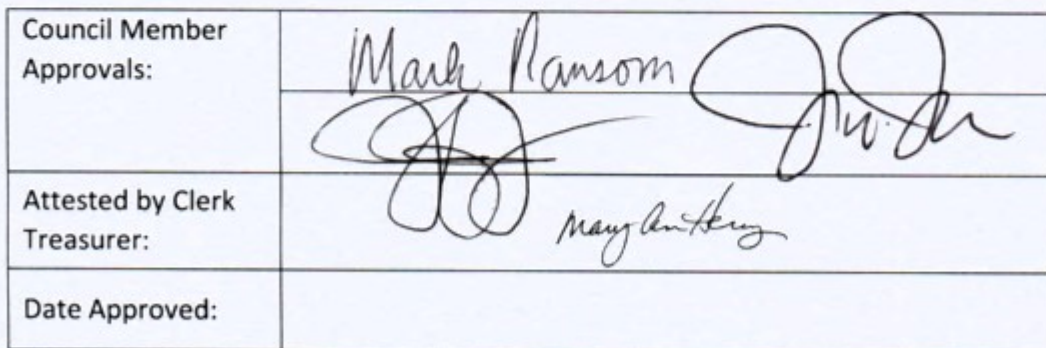 Council Member
Approvals:
Mark Ransom
Attested by Clerk
Treasurer:
Mary Ann Henry
Date Approved: